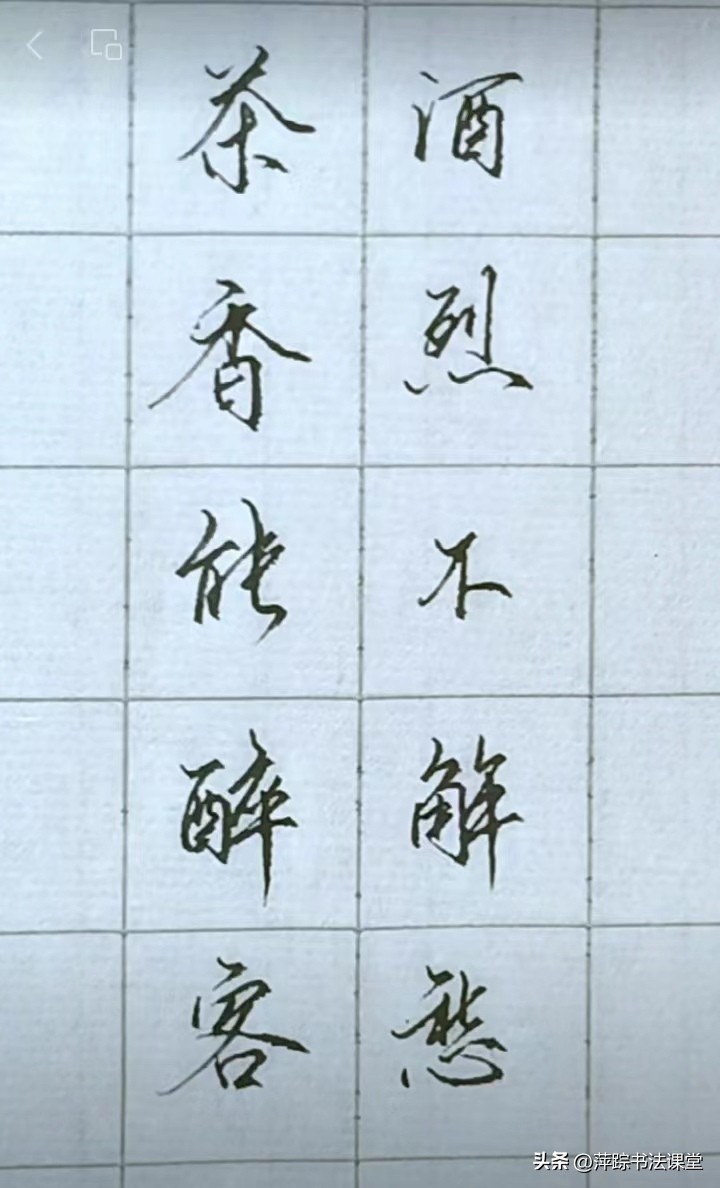 酒烈不解愁
茶香能醉客
头条 @萍踪书法课堂